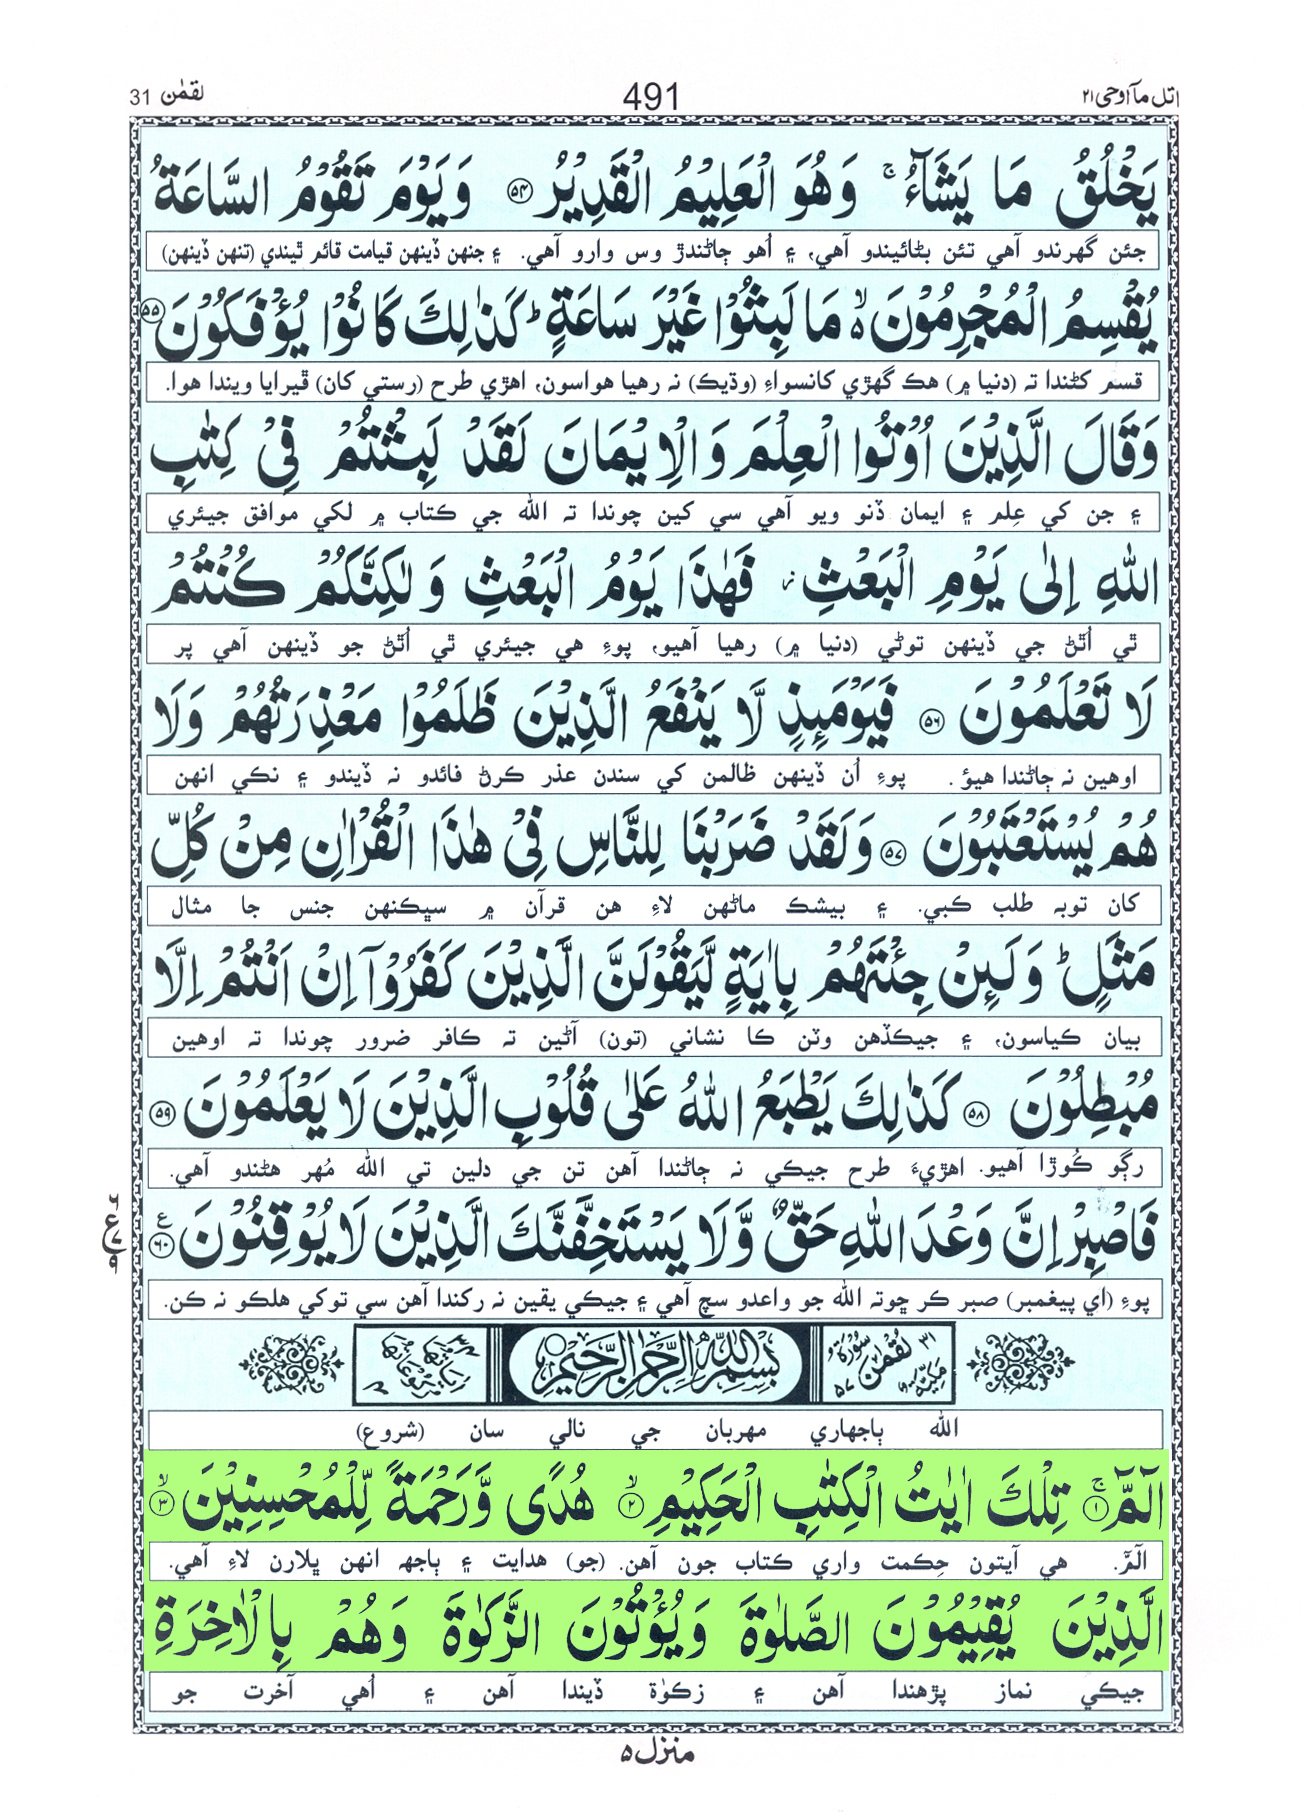 اتل مآ اوحی ۲۱
491
لقمٰن 31
يَخْلُقُ مَا يَشَآءُ ۚ وَهُوَ الْعَلِيْمُ الْقَدِيْرُ ۝۵۴ وَيَوْمَ تَقُوْمُ السَّاعَةُ
جئن گھرندو آهي تئن بڻائيندو آهي، ۽ اُهو ڄاڻندڙ وس وارو آهي. ۽ جنهن ڏينهن قيامت قائم ٿيندي (تنهن ڏينهن)
يُقْسِمُ الْمُجْرِمُوْنَ ۙ مَا لَبِثُوْا غَيْرَ سَاعَةٍ ؕ كَذٰلِكَ كَانُوْا يُؤْفَكُوْنَ ۝۵۵
قسم کڻندا تہ (دنيا ۾) هڪ گھڙي کانسواءِ (وڌيڪ) نہ رهيا هواسون، اهڙي طرح (رستي کان) ڦيرايا ويندا هوا.
وَقَالَ الَّذِيْنَ اُوْتُوا الْعِلْمَ وَالْاِيْمَانَ لَقَدْ لَبِثْتُمْ فِيْ كِتٰبِ
۽ جن کي عِلم ۽ ايمان ڏنو ويو آهي سي کين چوندا تہ الله جي ڪتاب ۾ لکي موافق جيئري
اللّٰهِ اِلٰى يَوْمِ الْبَعْثِ ؗ فَهٰذَا يَوْمُ الْبَعْثِ وَلٰكِنَّكُمْ كُنْتُمْ
ٿي اُٿڻ جي ڏينهن توڻي (دنيا ۾) رهيا آهيو، پوءِ هي جيئري ٿي اُٿڻ جو ڏينهن آهي پر
لَا تَعْلَمُوْنَ ۝۵۶ فَيَوْمَىِٕذٍ لَّا يَنْفَعُ الَّذِيْنَ ظَلَمُوْا مَعْذِرَتُهُمْ وَلَا
اوهين نہ ڄاڻندا هيؤ. پوءِ اُن ڏينهن ظالمن کي سندن عذر ڪرڻ فائدو نہ ڏيندو ۽ نڪي انهن
هُمْ يُسْتَعْتَبُوْنَ ۝۵۷ وَلَقَدْ ضَرَبْنَا لِلنَّاسِ فِيْ هٰذَا الْقُرْاٰنِ مِنْ كُلِّ
کان توبہ طلب ڪبي. ۽ بيشڪ ماڻهن لاءِ هن قرآن ۾ سڀڪنهن جنس جا مثال
مَثَلٍ ؕ وَلَىِٕنْ جِئْتَهُمْ بِاٰيَةٍ لَّيَقُوْلَنَّ الَّذِيْنَ كَفَرُوْۤا اِنْ اَنْتُمْ اِلَّا
بيان ڪياسون، ۽ جيڪڏهن وٽن ڪا نشاني (تون) آڻين تہ ڪافر ضرور چوندا تہ اوهين
مُبْطِلُوْنَ ۝۵۸ كَذٰلِكَ يَطْبَعُ اللّٰهُ عَلٰى قُلُوْبِ الَّذِيْنَ لَا يَعْلَمُوْنَ ۝۵۹
رڳو ڪُوڙا آهيو. اهڙيءَ طرح جيڪي نہ ڄاڻندا آهن تن جي دلين تي الله مُهر هڻندو آهي.
فَاصْبِرْ اِنَّ وَعْدَ اللّٰهِ حَقٌّ وَّلَا يَسْتَخِفَّنَّكَ الَّذِيْنَ لَا يُوْقِنُوْنَ ۝۶۰ ع
پوءِ (اي پيغمبر) صبر ڪر ڇوتہ الله جو واعدو سچ آهي ۽ جيڪي يقين نہ رکندا آهن سي توکي هلڪو نہ ڪن.
۳۱ سُوْرَةُ لُقْمٰنَ مَكِّيَّةٌ ۵۷
بِسْمِ اللّٰهِ الرَّحْمٰنِ الرَّحِيْمِ
اٰيَاتُهَا ۳۴ رُكُوْعَاتُهَا ۴
الله ٻاجھاري مهربان جي نالي سان (شروع)
الٓمّٓ ۚ۝۱ تِلْكَ اٰيٰتُ الْكِتٰبِ الْحَكِيْمِ ۙ۝۲ هُدًى وَّرَحْمَةً لِّلْمُحْسِنِيْنَ ۙ۝۳
الٓمّٓ. هي آيتون حِڪمت واري ڪتاب جون آهن. (جو) هدايت ۽ ٻاجھہ انهن ڀلارن لاءِ آهي.
الَّذِيْنَ يُقِيْمُوْنَ الصَّلٰوةَ وَيُؤْتُوْنَ الزَّكٰوةَ وَهُمْ بِالْاٰخِرَةِ
جيڪي نماز پڙهندا آهن ۽ زڪوٰة ڏيندا آهن ۽ اُهي آخرت جو
منزل ۵